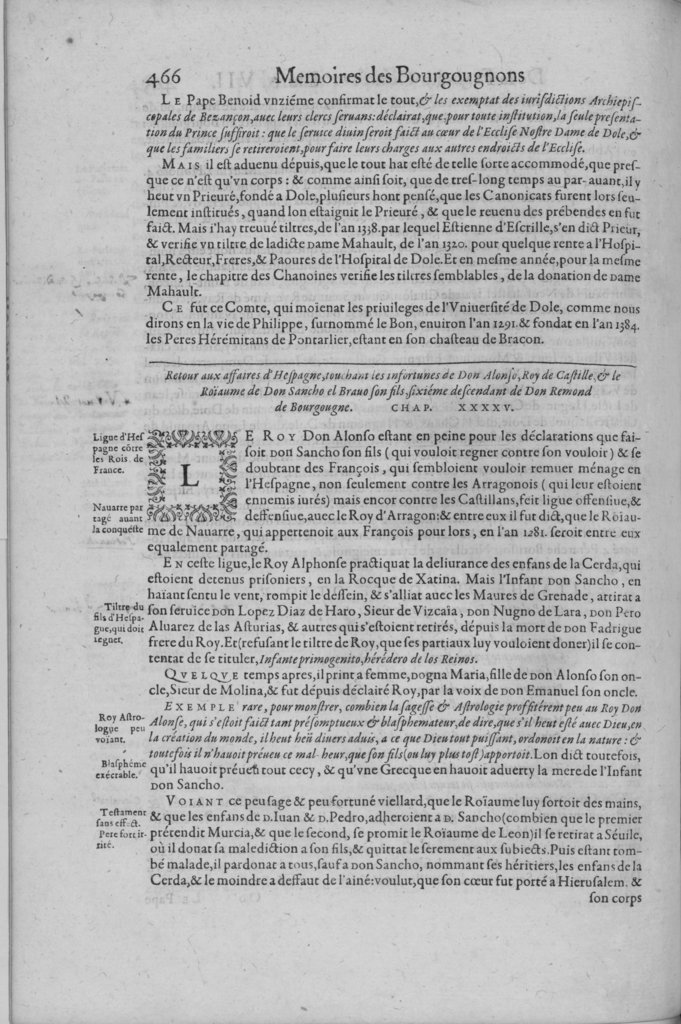 466 Memoires des Bourgougnons
LE Pape Benoid vnziéme confirmat le tout,& les exemptat des iurisdictions Archiepis-
copales de Bezançon,auec leurs clercs seruans: déclairat,que pour toute institution,la seule presenta-
tion du Prince suffiroit : que le seruice diuin seroit faict au cœur de l'Ecclise Nostre Dame de Dole,&
que les familiers se retireroient,pour faire leurs charges aux autres endroicts de l'Ecclise.
MAIS il est aduenu dépuis,que le tout hat esté de telle sorte accommodé,que pres-
que ce n'est qu'vn corps : & comme ainsi soit, que de tres-long temps au par-auant,il y
heut vn Prieuré,fondé a Dole,plusieurs hont pensé,que les Canonicats furent lors seu-
lement institués, quand lon estaignit le Prieuré, & que le reuenu des prébendes en fut
faict. Mais i'hay treuué tiltres,de l'an 1338.par lequel Estienne d'Escrille,s'en dict Prieur,
& verifie vn tiltre de ladicte Dame Mahault, de l'an 1320. pour quelque rente a l'Hospi-
tal,Recteur,Freres,& Paoures de l'Hospital de Dole.Et en mesme année,pour la mesme
rente, le chapitre des Chanoines verifie les tiltres semblables, de la donation de Dame
Mahault.
CE fut ce Comte, qui moienat les priuileges de l'Vniuersité de Dole, comme nous
dirons en la vie de Philippe, surnommé le Bon, enuiron l'an 1291.& fondat en l'an 1384.
les Peres Hérémitans de Pontarlier,estant en son chasteau de Bracon.
Retour aux affaires d'Hespagne,touchant les infortunes de Don Alonso,Roy de Castille,& le
Roïaume de Don Sancho el Brauo son fils,sixiéme descendant de Don Remond
de Bourgougne. CHAP. XXXXV.
Ligue d'Hes
pagne côtre
les Rois de
France.
Nauarre par
tagé auant
la conqueste
LE ROY Don Alonso estant en peine pour les déclarations que fai-
soit Don Sancho son fils ( qui vouloit regner contre son vouloir ) & se
doubtant des François, qui sembloient vouloir remuer ménage en
l'Hespagne, non seulement contre les Arragonois ( qui leur estoient
ennemis iurés) mais encor contre les Castillans,feit ligue offensiue,&
deffensiue,auec le Roy d'Arragon:& entre eux il fut dict,que le Roïau-
me de Nauarre, qui appertenoit aux François pour lors, en l'an 1281. seroit entre eux
equalement partagé.
EN ceste ligue,le Roy Alphonse practiquat la deliurance des enfans de la Cerda,qui
estoient detenus prisoniers, en la Rocque de Xatina. Mais l'Infant Don Sancho, en
haïant sentu le vent, rompit le dessein, & s'alliat auec les Maures de Grenade, attirat a
son seruice Don Lopez Diaz de Haro, Sieur de Vizcaïa, Don Nugno de Lara, Don Pero
Aluarez de las Asturias, & autres qui s'estoient retirés, dépuis la mort de Don Fadrigue
frere du Roy.Et(refusant le tiltre de Roy,que ses partiaux luy vouloient doner)il se con-
tentat de se tituler,Infante primogenito,hérédero de los Reinos.
Tiltre du
fils d'Hespa-
gne,qui doit
regner.
QVELQVE temps apres,il print a femme,Dogna Maria,fille de don Alonso son on-
cle,Sieur de Molina,& fut dépuis déclairé Roy,par la voix de don Emanuel son oncle.
EXEMPLE rare, pour monstrer, combien la sagesse & Astrologie proffitérent peu au Roy Don
Alonse, qui s'estoit faict tant présomptueux & blasphemateur,de dire,que s'il heut esté auec Dieu,en
la création du monde, il heut heü diuers aduis, a ce que Dieu tout puissant, ordonoit en la nature : &
toutefois il n'hauoit préueu ce mal-heur,que son fils(ou luy plus tost)apportoit.Lon dict toutefois,
qu'il hauoit préueu tout cecy, & qu'vne Grecque en hauoit aduerty la mere de l'Infant
Don Sancho.
Roy Astro-
logue peu
voïant.
Blasphéme
exécrable.
VOIANT ce peu sage & peu fortuné viellard,que le Roïaume luy sortoit des mains,
& que les enfans de D.Iuan & D.Pedro,adheroient a D. Sancho(combien que le premier
prétendit Murcia,& que le second, se promit le Roïaume de Leon)il se retirat a Séuile,
où il donat sa malediction a son fils,& quittat le serement aux subiects.Puis estant tom-
bé malade,il pardonat a tous,sauf a Don Sancho, nommant ses héritiers,les enfans de la
Cerda,& le moindre a deffaut de l'ainé:voulut,que son cœur fut porté a Hierusalem. &
Testament
sans effect.
Pere fort ir-
rité.
son corps